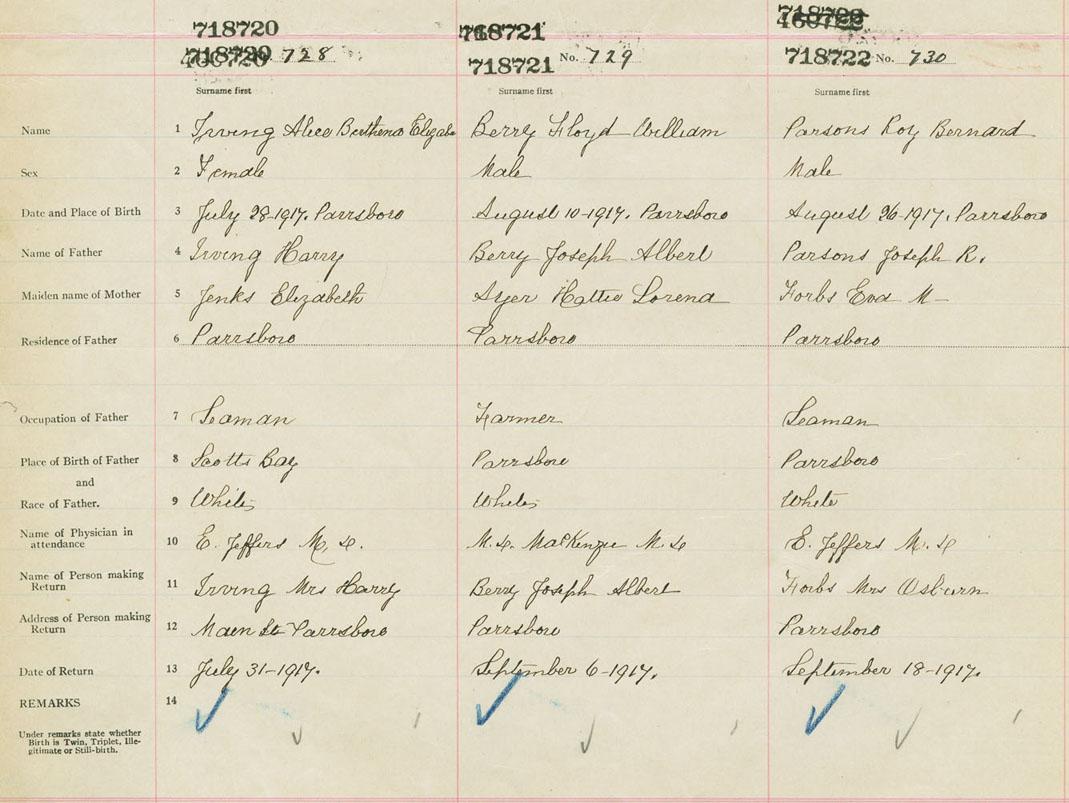 718720 718721 718722
718720 No. 728 718721 No. 729 718722 No. 730
Surname first Surname first Surname first
Name 1 Irving Alice Berthena Elizabe Berry Floyd William Parsons Roy Bernard
Sex 2 Female Male Male
Date and Place of Birth 3 July 28-1917. Parrsboro August 10-1917. Parrsboro August 26-1917. Parrsboro
Name of Father 4 Irving Harry Berry Joseph Albert Parsons Joseph R.
Maiden name of Mother 5 Jenks Elizabeth Ayer Hattie Lorena Forbs Eva M
Residence of Father 6 Parrsboro Parrsboro Parrsboro
Occupation of Father 7 Seaman Farmer Seaman
Place of Birth of Father 8 Scotts Bay Parrsboro Parrsboro
and
Race of Father. 9 White White White
Name of Physician in
attendance 10 E. Jeffers M. D. M. D. MacKenzie M. D E. Jeffers M. D
Name of Person making
Return 11 Irving Mrs Harry Berry Joseph Albert Forbs Mrs Osburn
Address of Person making
Return 12 Main St Parrsboro Parrsboro Parrsboro
Date of Return 13 July 31-1917. September 6-1917. September 18-1917.
REMARKS 14
Under remarks state whether
Birth is Twin, Triplet, Ille-
gitimate or Still-birth.